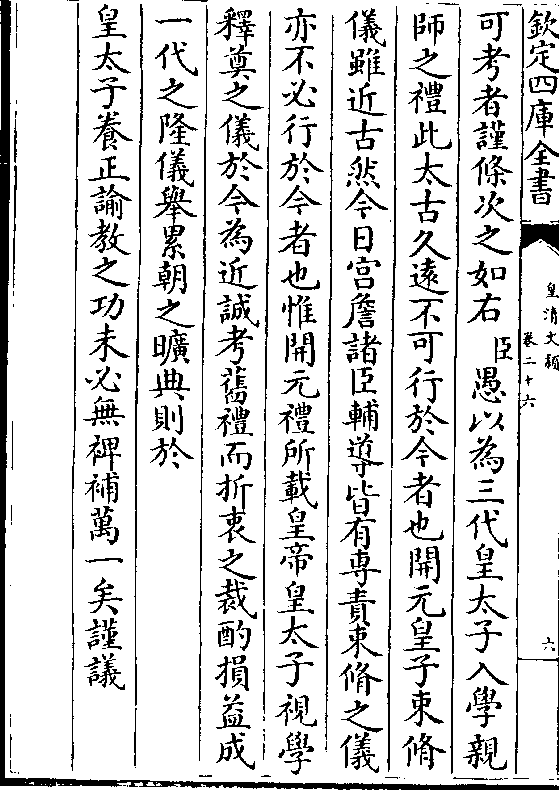 欽定四庫全書
皇清文穎
卷二十六
六
可考者謹條次之如右臣愚以為三代皇太子入學親
師之禮此太古久遠不可行於今者也開元皇子束脩
儀雖近古然今日宫詹諸臣輔導皆有專責束脩之儀
亦不必行於今者也惟開元禮所載皇帝皇太子視學
釋奠之儀於今為近誠考舊禮而折衷之裁酌損益成
一代之隆儀舉累朝之曠典則於
皇太子養正諭教之功未必無裨補萬一矣謹議